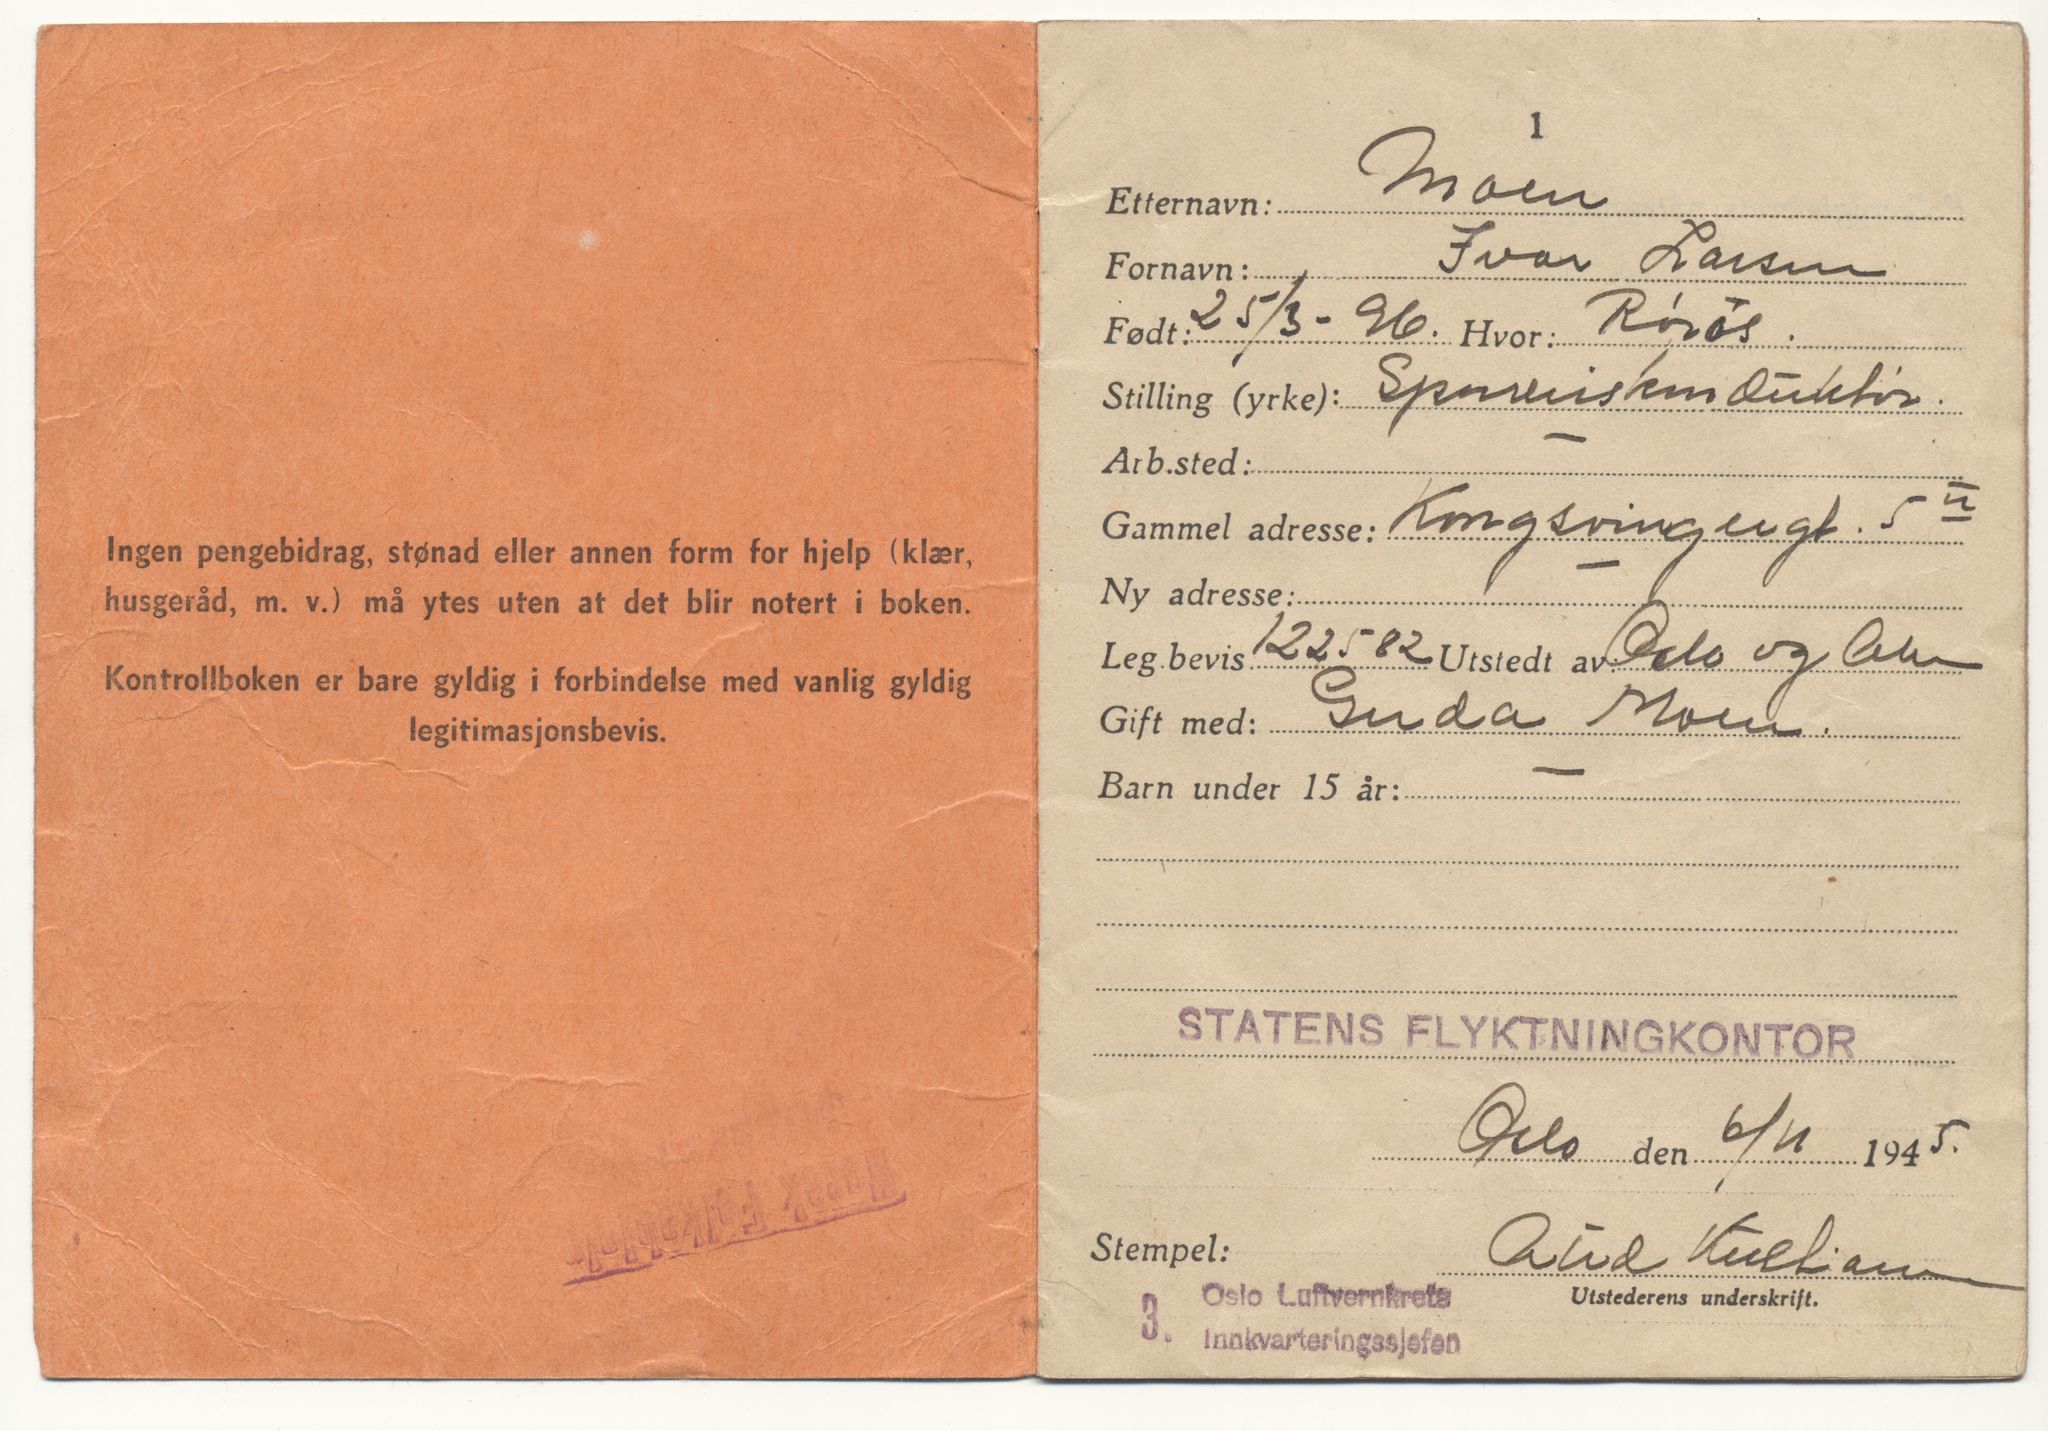 Ingen pengebidrag, stønad eller annen form for hjelp (klær,
husgeråd, m. v.) må ytes uten at det blir notert i boken.
Kontrollboken er bare gyldig i forbindelse med vanlig gyldig
legitimasjonsbevis.
Norsk Folkehjelp
1
Etternavn: Moen
Fornavn: Ivar Larsen
Født: 25/3-96. Hvor: Röros.
Stilling (yrke): Sporveiskonduktör.
Arb.sted: —
Gammel adresse: Kongsvingergt. 5 II
Ny adresse: —
Leg.bevis 122582 Utstedt av Oslo og Aker
Gift med: Gerda Moen.
Barn under 15 år: —
STATENS FLYKTNINGKONTOR
Oslo den 6/11 1945.
Stempel:
Utstederens underskrift.
3. Oslo Luftvernkrets
Innkvarteringssjefen